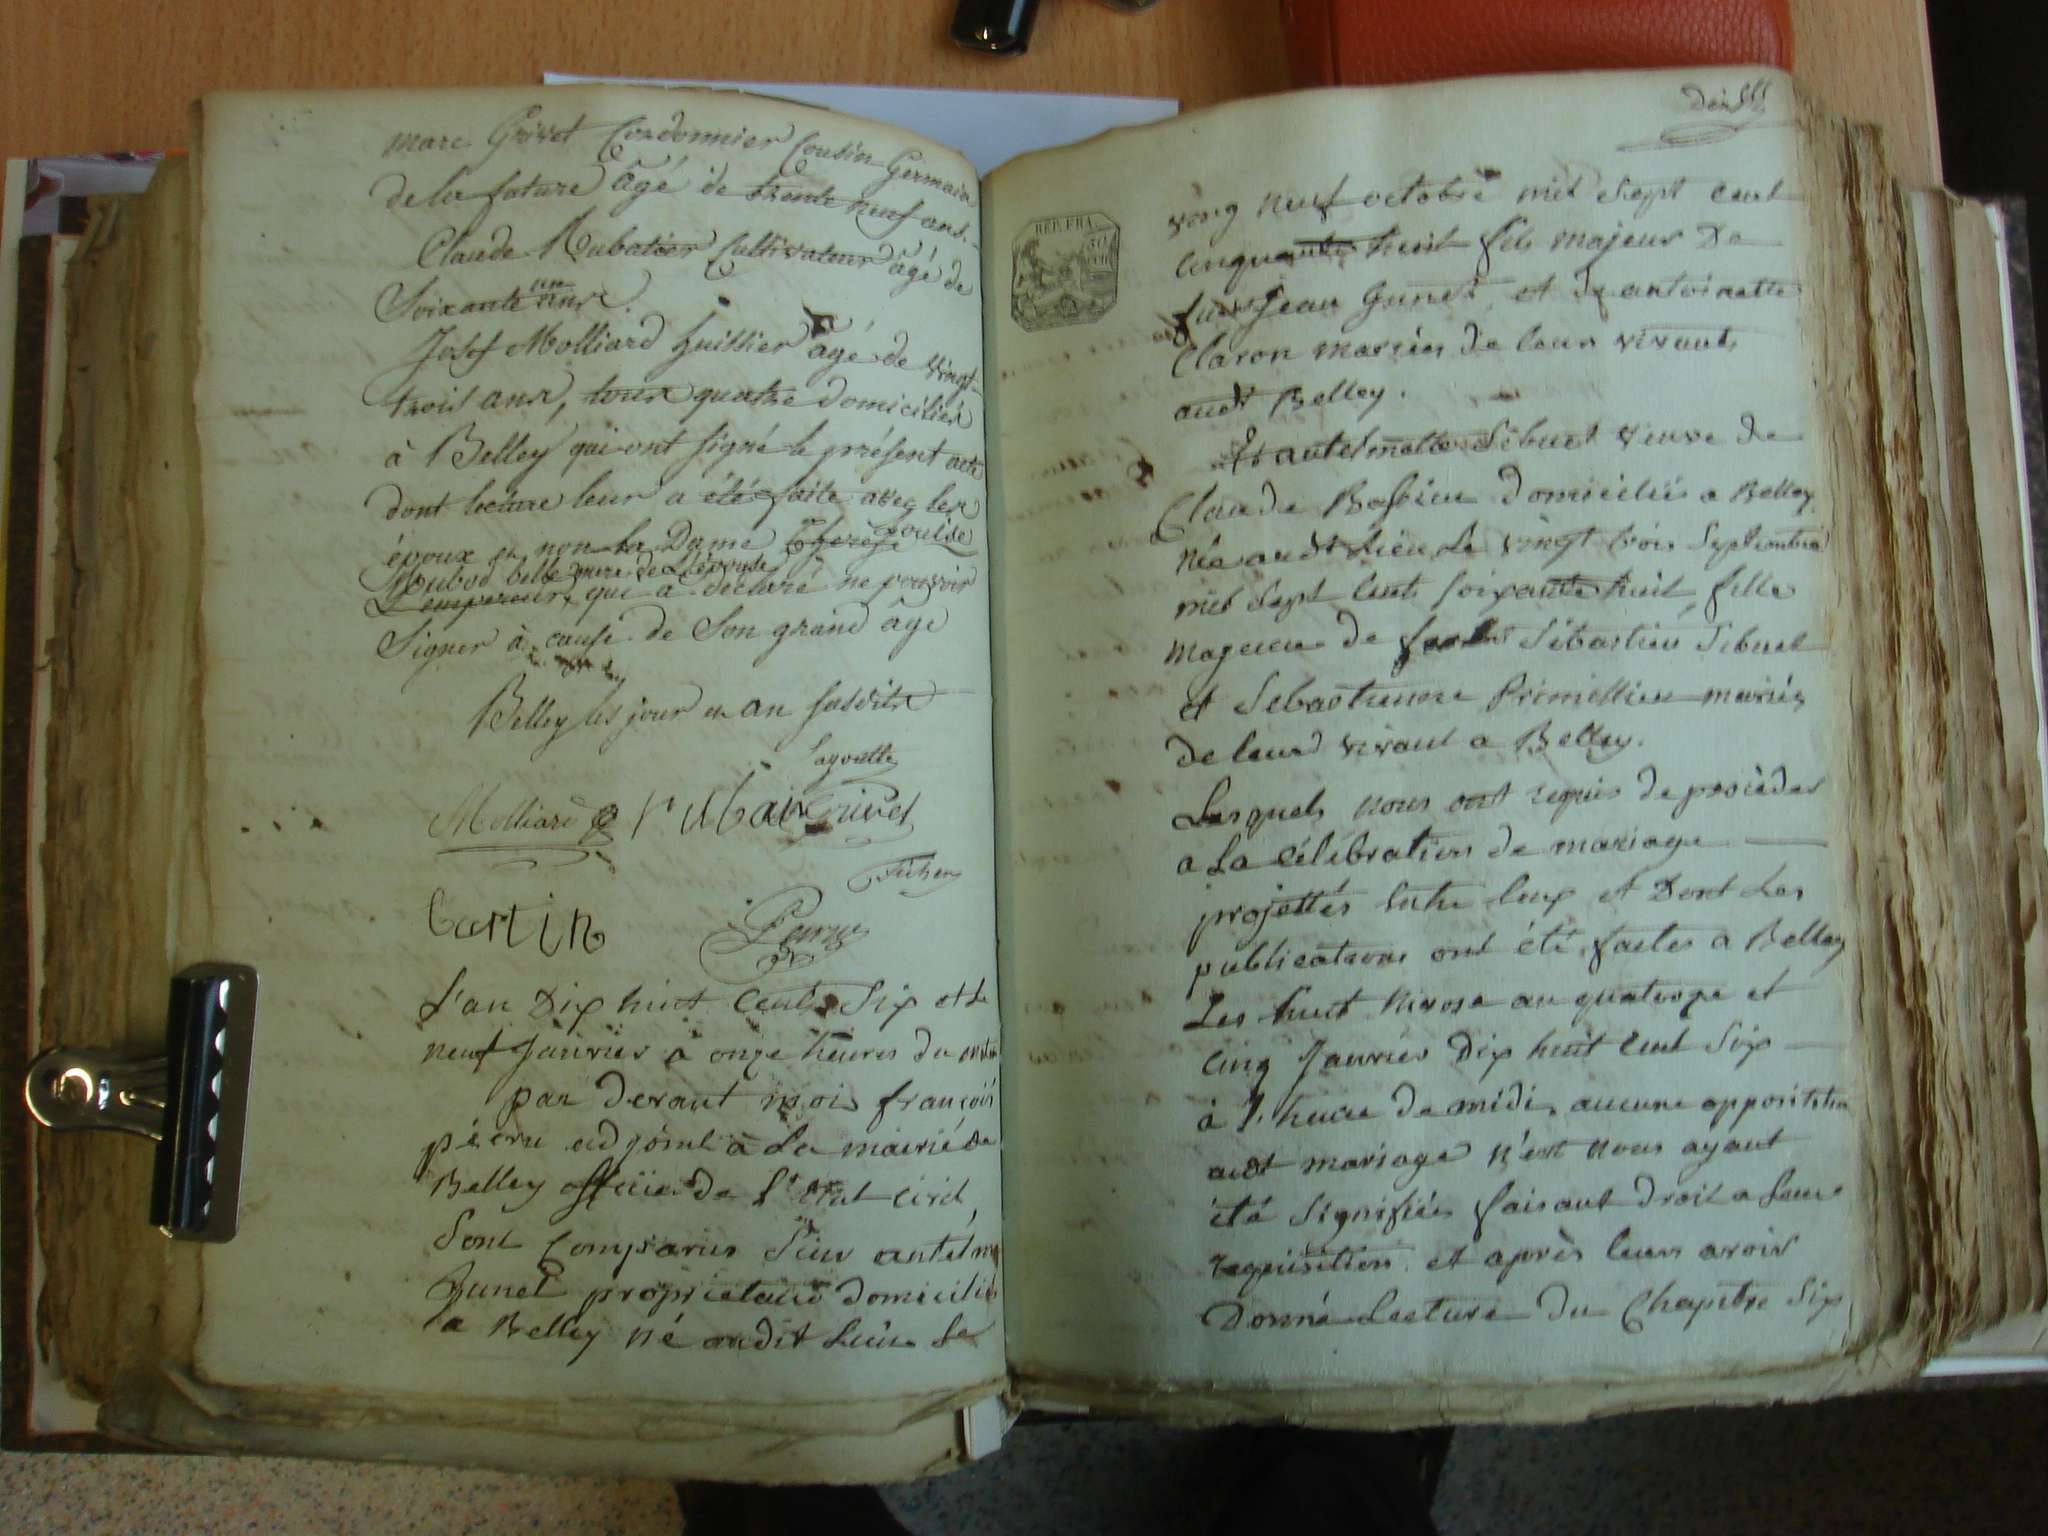 marc Grivet Cordonnier Cousin Germain
de la future âgé de trente neuf ans.
Claude Rubatier Cultivateur âgé de
Soixante un ans.
Josef Molliard huissier âgé de vingt
trois ans, tous quatre domiciliés
à Belley qui ont signé le présent acte
dont lecture leur a été faite avec les
époux et non la Dame Therese Louise
belle mere de L'épouse
L'empereur, qui a déclaré ne pouvoir
Signer à cause de Son grand âge
Belley les jour et an susdits
Layvette
Molliard rubati Grivet
Tartin
L'an Dix huit Cents Six et le
neuf Janvier à onze heures du matin
par devant moi françois
péru adjoint à La mairie de
Belley officier de l'état civil
Sont Comparus Sieur antelme
Junet propriétaire domicilié
a Belley né audit Lieu Le
REP. FRA.
vingt neuf octobre mil Sept cent
cinquante huit fils majeur De
Jean Gunet et de antoinette
Claron mariés de leur vivant
audt Belley.
Et antelmette Sibuet veuve de
Claude domiciliés a Belley
née audt Lieu Le vingt trois Septembre
mil Sept Cent Soixante huit, fille
majeure de Sébastien Sibuet
et Sebastienne Primillieu mariés
de leur vivant a Belley.
Lesquels nous ont requis de procèder
a La célébration de mariage
projettés entre Eux et Dont Les
publications ont été faites a Belley
Les huit Nivose an quatorze et
cinq Janvier Dix huit Cent Six
à L'heure de midi, aucune opposition
audt mariage n'ent nous ayant
été Signifiée faisant Droit a Leur
requisition et après leurs avoir
Donné Lecture du Chapitre Six